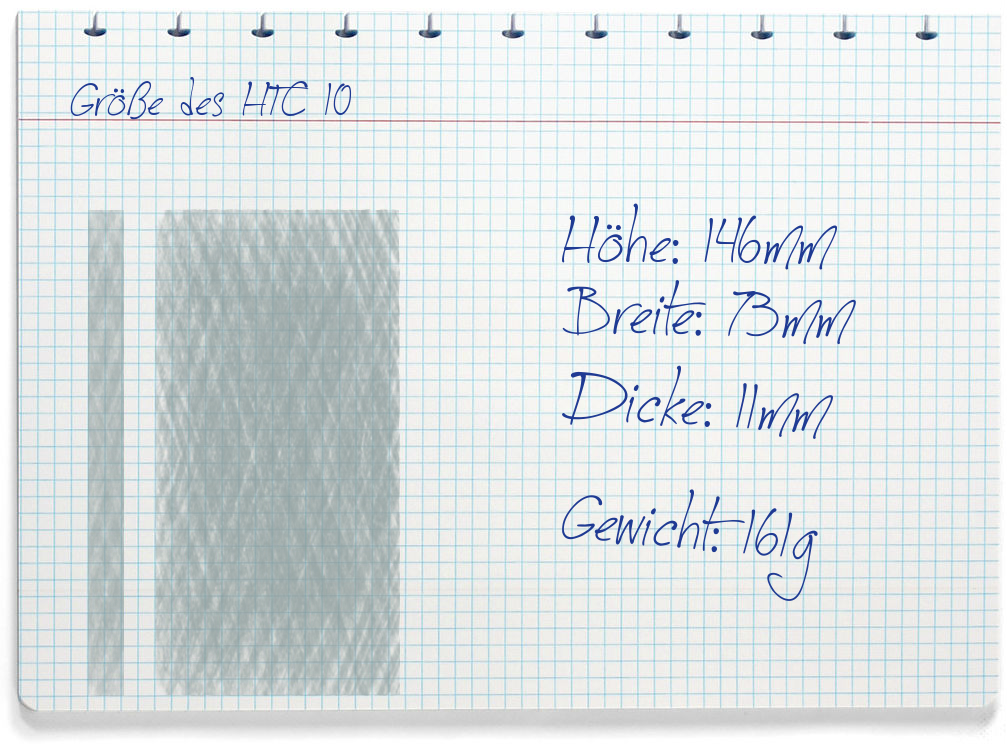 Größe des HTC 10
Höhe: 146mm
Breite: 73mm
Dicke: 11mm
Gewicht: 161g